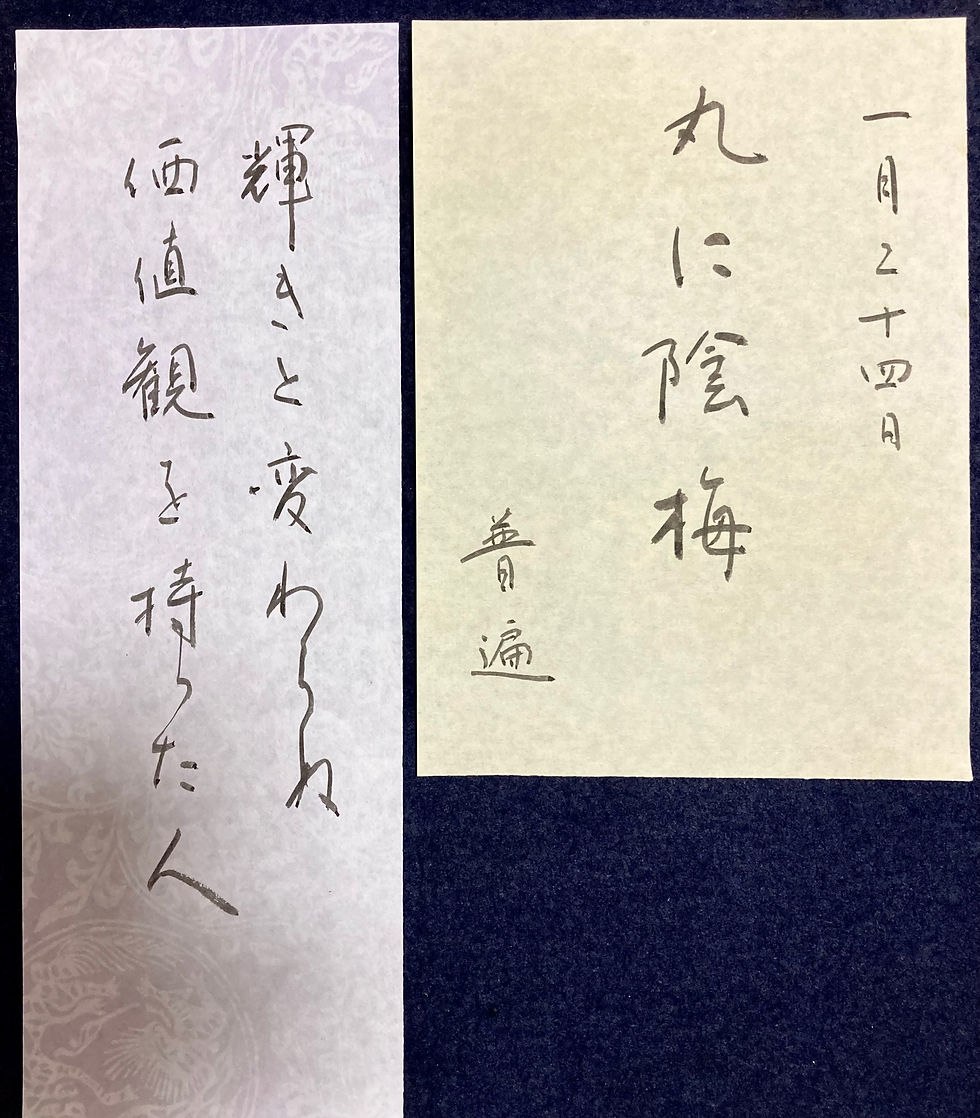 一月二十四日
丸に陰梅
普遍
輝きと変わらぬ
価値観を持った人